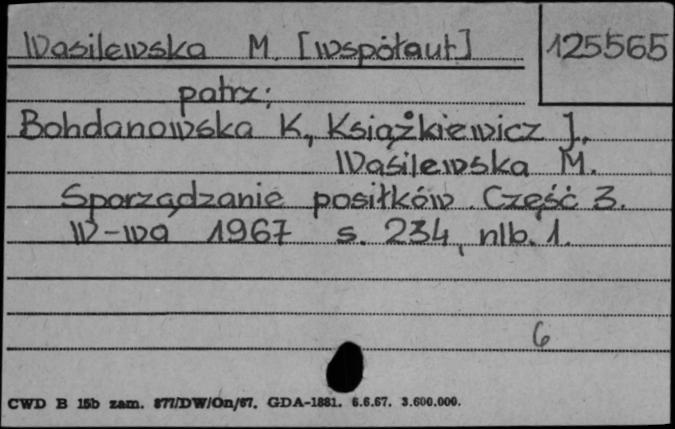 Wasilewska M. [współaut] 125565
patrz:
Bohdanowska K., Książkiewicz J.,
Wasilewska M.
Sporządzanie posiłków. Część 3.
W-wa 1967 s. 234, nlb. 1.
6
CWD B 15b zam. 877/DW/On/67. GDA-1881. 6.6.67. 3.600.000.